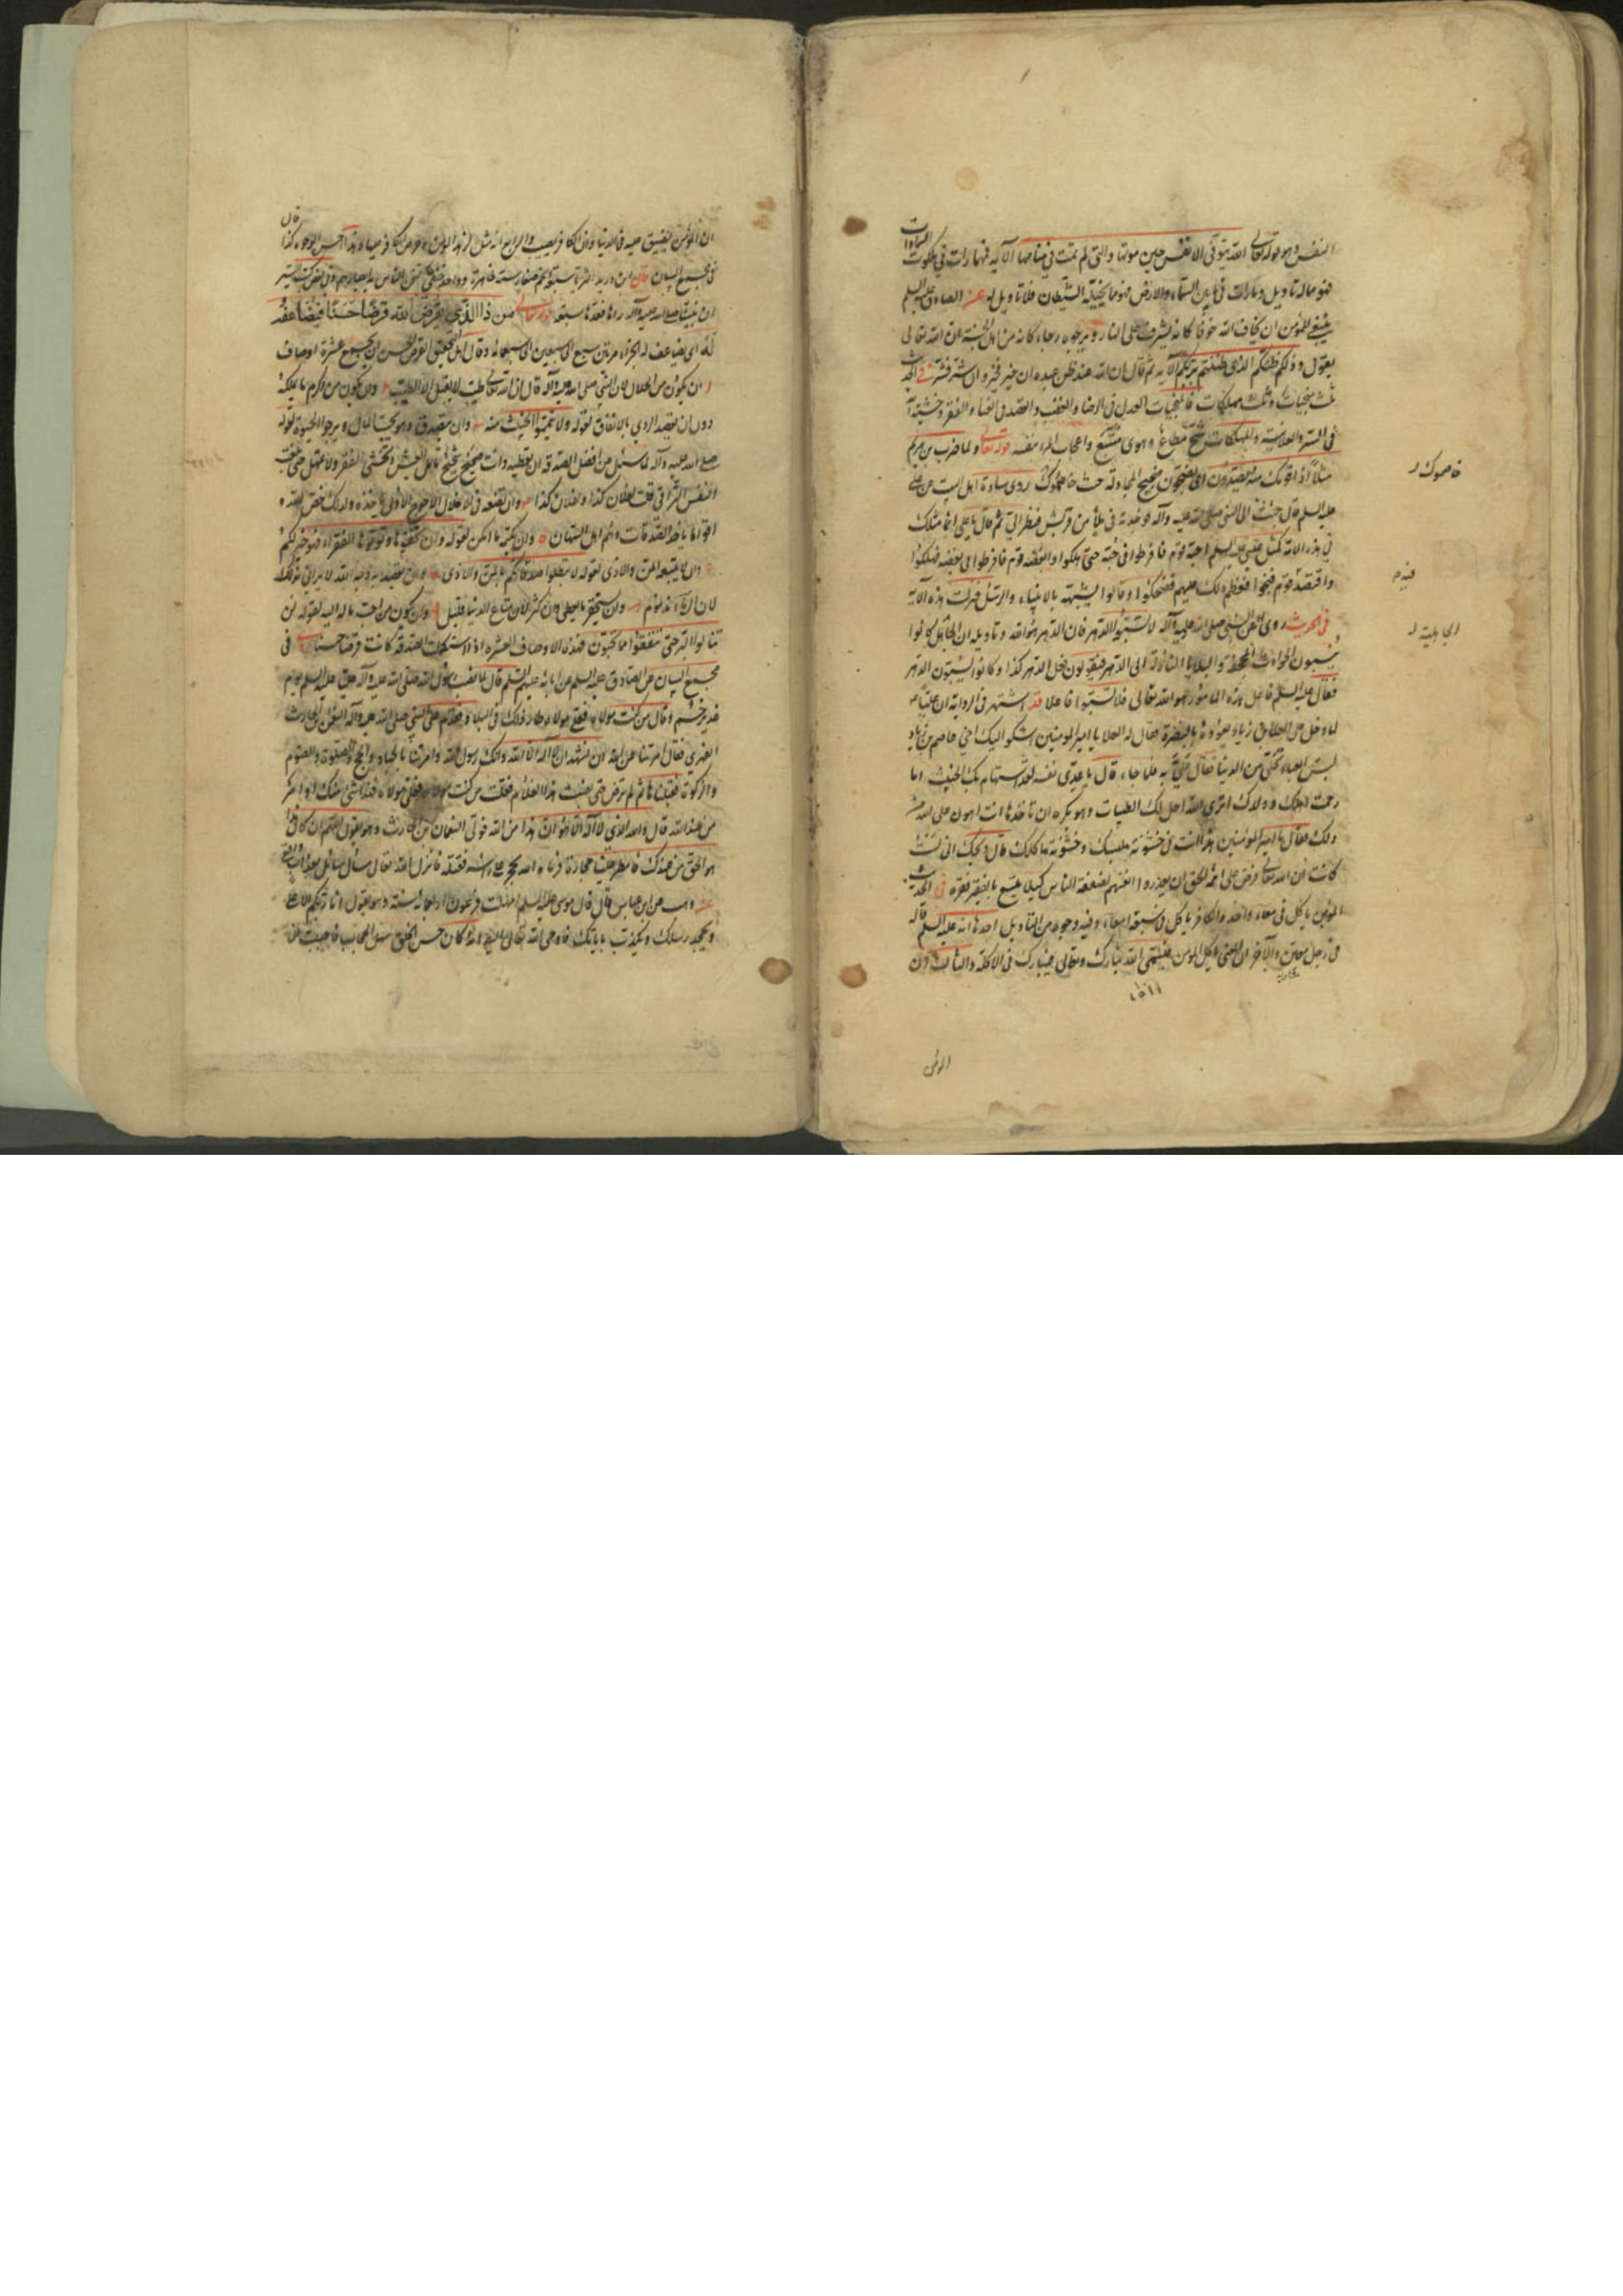 النفس وهو قوله تعالى الله يتوفى الانفس حين موتها والتي لم تمت في منامها الآية فمهما رات في ملكوت السماوات
فهو ماله تاويل وما رات في ما بين السماء والارض فهو ما يخيله الشيطان فلا تاويل له عن الصادق عليه السلم
ينبغي للمؤمن ان يخاف الله خوفا كانه يشرف على النار ويرجوه رجاء كانه من اهل الجنة ان الله تعالى
يقول وذلكم ظنكم الذي ظننتم بربكم الآية ثم قال ان الله عند ظن عبده ان خير فخير وان شر فشر في الحديث
ثلث منجيات وثلث مهلكات فالمنجيات العدل في الرضا والغضب والقصد في الغناء والفقر وخشية الله
في السر والعلانية والمهلكات شح مطاع وهوى متبع واعجاب المرء بنفسه قوله تعالى ولما ضرب بن مريم
مثلا اذا قومك منه يصدون اي يضجون ضجيج المجادلة حيث خاصموك روى سادة اهل البيت عن علي
عليه السلم قال جئت الى النبي صلى الله عليه وآله فوجدته في ملأ من قريش فنظر الي ثم قال يا علي انما مثلك
في هذه الامة كمثل عيسى عليه السلم احبه قوم فافرطوا في حبه حتى هلكوا وابغضه قوم فافرطوا في بغضه فهلكوا
واقتصد قوم فنجوا فعظم ذلك عليهم فضحكوا وقالوا يشبهه بالانبياء والرسل فنزلت هذه الآية
في الحديث روى عن النبي صلى الله عليه وآله لا تسبوا الدهر فان الدهر هو الله وتاويله ان اهل الجاهلية كانوا
ينسبون الحوادث المجحفة والبلايا النازلة الى الدهر فيقولون فعل الدهر كذا وكانوا يسبون الدهر
فقال عليه السلم فاعل هذه الامور هو الله تعالى فلا تسبوا فاعلها قد اشتهر في الرواية ان عليا
لما دخل على العلاء بن زياد يعوده بالبصرة فقال له العلاء يا امير المومنين اشكو اليك اخي عاصم بن زياد
لبس العباء وتخلى من الدنيا فقال علي به فلما جاء قال يا عدي نفسه لقد استهام بك الخبيث اما
رحمت اهلك وولدك اترى الله احل لك الطيبات وهو يكره ان تاخذها انت اهون على الله من
ذلك فقال يا امير المومنين هذا انت في خشونة ملبسك وخشوبة ماكلك قال ويحك اني لست
كانت ان الله تعالى فرض على ائمة الحق ان يقدروا انفسهم بضعفة الناس كيلا يتبيغ بالفقير فقره في الحديث
المؤمن ياكل في معاء واحد والكافر ياكل في سبعة امعاء وفيه وجوه من التاويل احدها انه عليه السلم قاله
في رجل معين والآخر ان المعنى ياكل المومن فيسمي الله تبارك وتعالى فيبارك في الاكلة والثالث ان
المؤمن
خاصموك
فيه
الجاهلية
ان المؤمن يضيق عليه في الدنيا وان الكافر يصيب والرابع انه مثل لزهد المومن وحرص الكافر عليها وهذا احسن الوجوه كذا قال
في مجمع البيان قال ابن دريد الثريا سبعة انجم ستة ظاهرة وواحد خفي يمتحن الناس به ابصارهم وفي بعض كتب السير
ان نبينا صلى الله عليه وآله راها فعدها سبعة قوله تعالى من ذا الذي يقرض الله قرضا حسنا فيضاعفه
له اي يضاعف له الجزاء من بين سبع الى سبعين الى سبعمائة وقال اهل التحقيق القرض الحسن ان يجمع عشرة اوصاف
ا ان يكون من الحلال لان النبي صلى الله عليه وآله قال ان الله تعالى طيب لا يقبل الا الطيب ٢ وان يكون من اكرم ما يملكه
دون ان يقصد الردي بالانفاق لقوله ولا تيمموا الخبيث منه ٣ وان يتصدق وهو يحب المال ويرجو الحيوة لقوله
صلى الله عليه وآله لما سئل من افضل الصدقة ان تعطيه وانت صحيح شحيح تامل العيش وتخشى الفقر ولا تمهل حتى بلغت
النفس التراقي قلت لفلان كذا ولفلان كذا ٤ وان تضعه في الاخل الاحوج الاولى باخذه ولذلك خص الله
اقواما باخذ الصدقات وهم اهل السهمان ٥ وان يكتمه ما امكن لقوله وان تخفوها وتؤتوها الفقراء فهو خير لكم
٦ وان لا يتبعه المن والاذى لقوله لا تبطلوا صدقاتكم بالمن والاذى ٧ وان يقصد به وجه الله لا يرائي بذلك
لان الرياء مذموم ٨ وان يستحقر ما يعطي وان كثر لان متاع الدنيا قليل ٩ وان يكون من احب ماله اليه لقوله لن
تنالوا البر حتى تنفقوا مما تحبون فهذه الاوصاف العشرة اذا استكملت الصدقة كانت قرضا حسنا في
مجمع البيان عن الصادق عليه السلم عن ابائه عليهم السلم قال لما نصب رسول الله صلى الله عليه وآله عليا عليه السلم يوم
غدير خم وقال من كنت مولاه فعلي مولاه طار ذلك في البلاد فقدم على النبي صلى الله عليه وآله النعمن بن الحارث
الفهري فقال امرتنا عن الله ان نشهد ان لا اله الا الله وانك رسول الله وامرتنا بالجهاد والحج والصلوة والصوم
والزكوة فقبلناها ثم لم ترض حتى نصبت هذا الغلام فقلت من كنت مولاه فعلي مولاه فهذا شي منك او امر
من عند الله قال والله الذي لا اله الا هو ان هذا من الله فولى النعمان بن الحارث وهو يقول اللهم ان كان هذا
هو الحق من عندك فامطر علينا حجارة فرماه الله بحجر على راسه فقتله فانزل الله تعالى سأل سائل بعذاب واقع
عن وهب عن ابن عباس قال قال موسى عليه السلم امهلت فرعون اربعمائة سنة وهو يقول انا ربكم الاعلى
ويجحد رسلك ويكذب باياتك فاوحى الله تعالى اليه انه كان حسن الخلق سهل الحجاب فاحببت ان